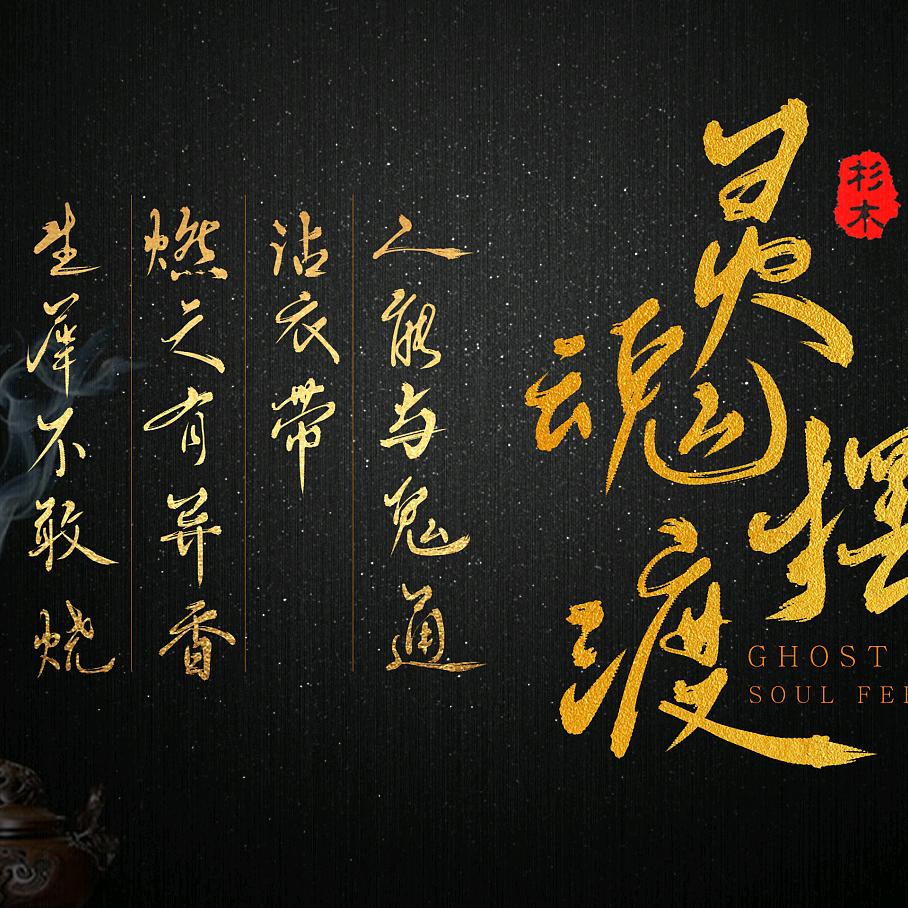 生犀不敢烧
燃之有异香
沾衣带
人能与鬼通
灵魂摆渡
杉木
GHOST
SOUL